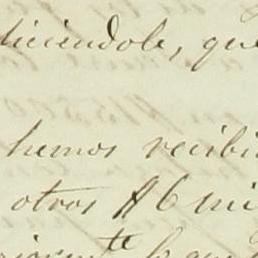 diciendole, que
hemos recibi
otros $6 mi
te que